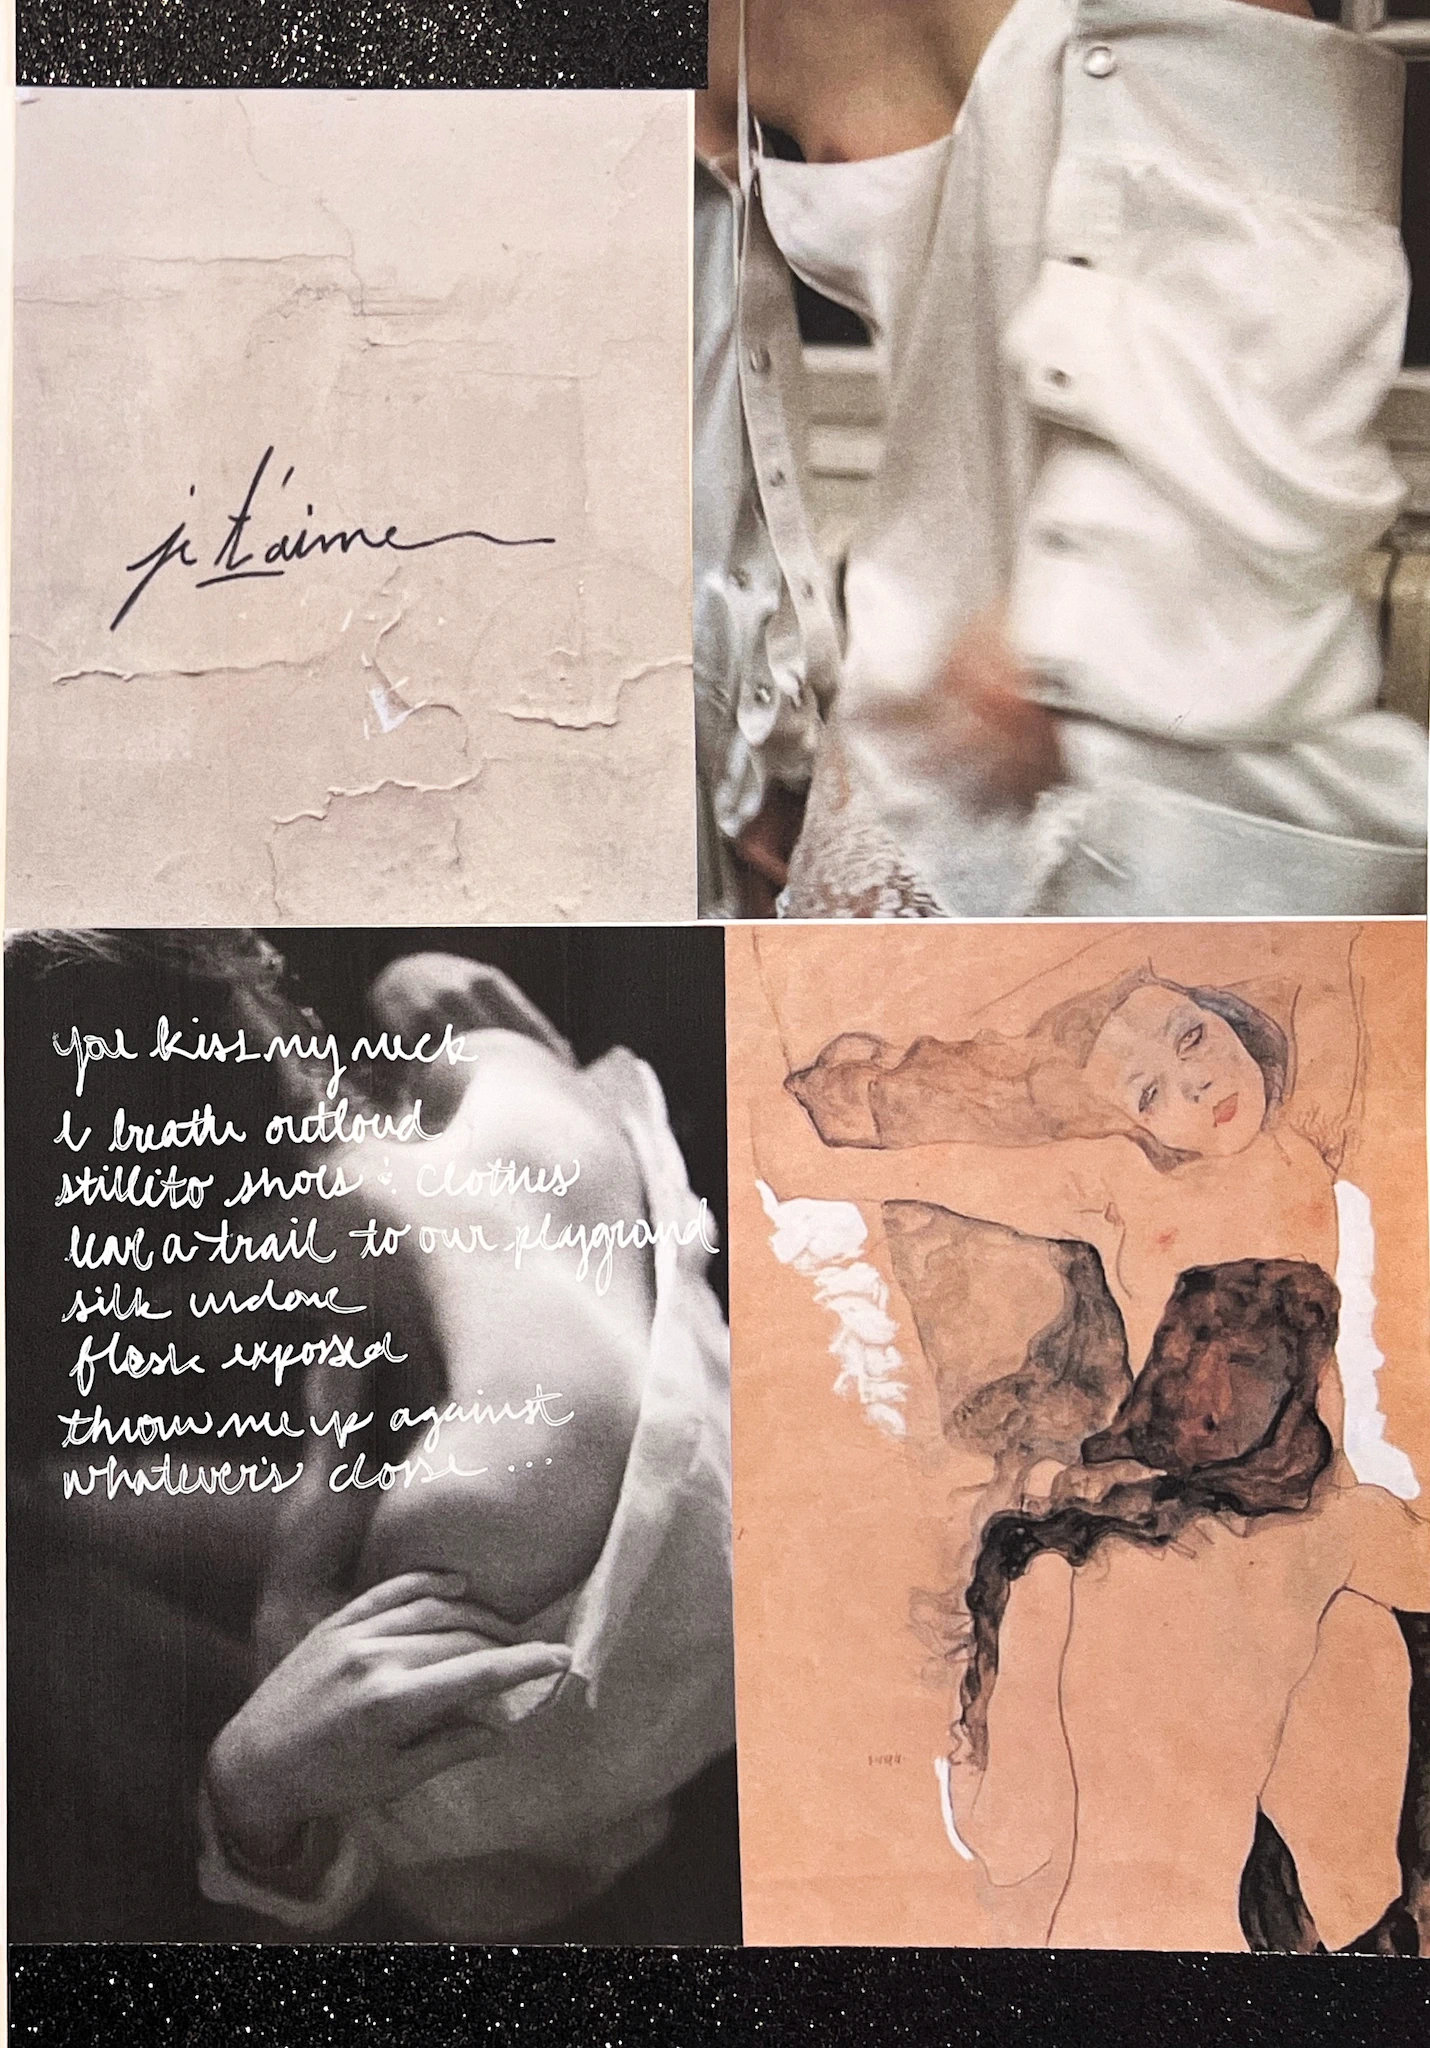 je t'aime
you kiss my neck
i breathe outloud
stilleto shoes & clothes
leave a trail to our playground
silk undone
flesh exposed
throw me up against
whatever's close ...